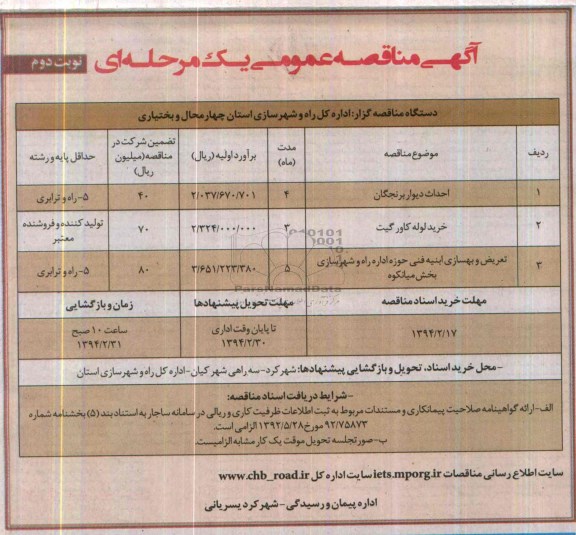 آگهی مناقصه عمومی یک مرحله‌ای
نوبت دوم
دستگاه مناقصه گزار: اداره کل راه و شهرسازی استان چهارمحال و بختیاری
ردیف موضوع مناقصه مدت (ماه) برآورد اولیه (ریال) تضمین شرکت در مناقصه (میلیون ریال) حداقل پایه و رشته
۱ احداث دیوار برنجگان ۴ ۲/۰۳۷/۶۷۰/۷۰۱ ۴۰ ۵-راه و ترابری
۲ خرید لوله کاورگیت ۳ ۲/۳۲۴/۰۰۰/۰۰۰ ۷۰ تولید کننده و فروشنده معتبر
۳ تعریض و بهسازی ابنیه فنی حوزه اداره راه و شهرسازی بخش میانکوه ۵ ۳/۶۵۱/۲۲۳/۳۸۰ ۸۰ ۵-راه و ترابری
مهلت خرید اسناد مناقصه مهلت تحویل پیشنهادها زمان و بازگشایی
۱۳۹۴/۲/۱۷ تا پایان وقت اداری ۱۳۹۴/۲/۳۰ ساعت ۱۰ صبح ۱۳۹۴/۲/۳۱
-محل خرید اسناد، تحویل و بازگشایی پیشنهادها: شهرکرد-سه راهی شهرکیان-اداره کل راه و شهرسازی استان
-شرایط دریافت اسناد مناقصه:
الف-ارائه گواهینامه صلاحیت پیمانکاری و مستندات مربوط به ثبت اطلاعات ظرفیت کاری و ریالی در سامانه ساجار به استناد بند (۵) بخشنامه شماره
۹۲/۷۵۸۷۳ مورخ ۱۳۹۲/۵/۲۸ الزامی است.
ب-صورتجلسه تحویل موقت یک کار مشابه الزامیست.
سایت اطلاع رسانی مناقصات iets.mporg.ir سایت اداره کل www.chb_road.ir
اداره پیمان و رسیدگی-شهرکرد یسریانی
ParsNamadData